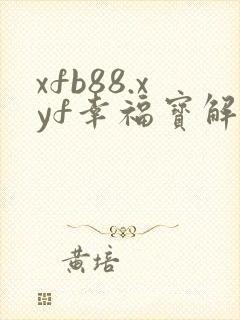 xfb88.x
yf幸福寳解
黄培